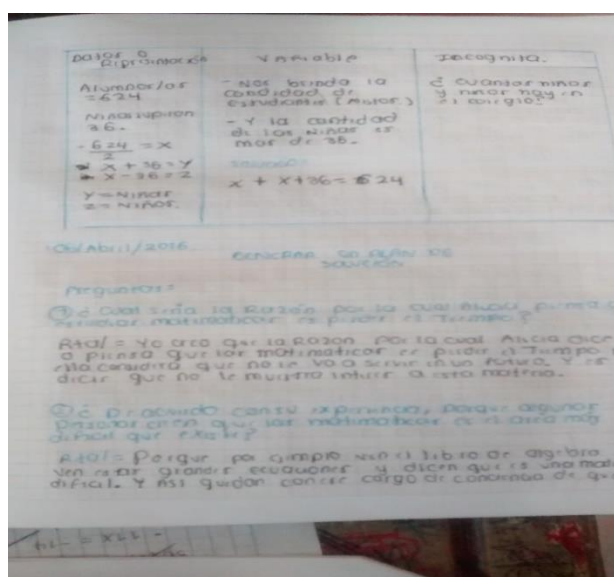 Datos o Representación
Variable
Incognita.
Alumnos/as
=624
Niñas superan
36.
- 624/2 = x
* x + 36 = Y
* x - 36 = Z
Y = Niñas.
Z = Niños.
- Nos brinda la
cantidad de
estudiantes (Motor.)
- Y la cantidad
de las Niñas es
mas de 36.
x + x + 36 = 624
¿ cuantas niñas
y niños hay en
el colegio?
/Abril/2016
GENERAR UN PLAN DE
SOLUCIÓN
Preguntas:
① ¿ Cual seria la Razón por la cual Alicia piensa
estudiar matematicas es perder el Tiempo?
Rta/= Yo creo que la Razon por la cual Alicia dice
o piensa que las matematicas es perder el Tiempo
ella considera que no le va a servir en un futuro. Y es
decir que no le muestra interes a esta materia.
② ¿ De acuerdo con tu experiencia, porque algunas
personas creen que las matematicas es el area mas
dificil que existe?
Rta/= Porque por ejemplo ven el libro de algebra
ven estas grandes ecuaciones y dicen que es una mat
dificil. Y Asi quedan con ese cargo de conciencia de que